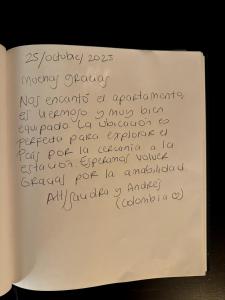 25/octubre/2023
Muchas gracias
Nos encantó el apartamento
es hermoso y muy bien
equipado La ubicación es
perfecta para explorar el
País por la cercanía a la
estación. Esperamos volver
Gracias por la amabilidad
Alissandra y Andrés
(Colombia ♡)